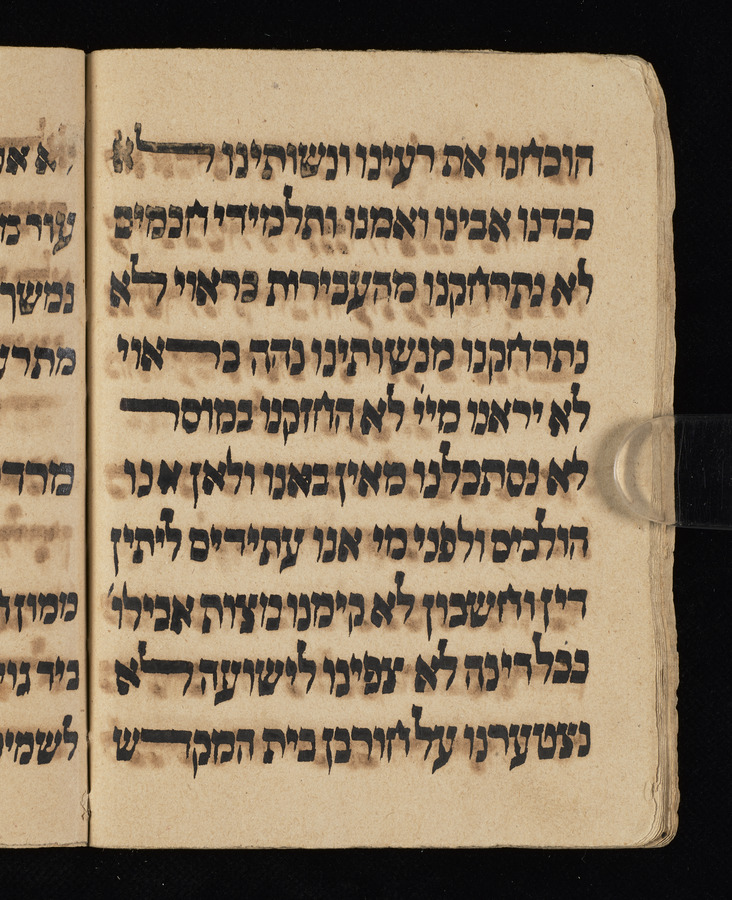 הוכחנו את רעינו ונשותינו לא
כבדנו אבינו ואמנו ותלמידי חכמים
לא נתרחקנו מהעבירות כראוי לא
נתרחקנו מנשותינו נהה כראוי
לא יראנו מיי לא החזקנו במוסר
לא נסתכלנו מאין באנו ולאן אנו
הולכים ולפני מי אנו עתידים ליתין
דין וחשבון לא קימנו מצות אבילו
ככל דינה לא צפינו לישועה לא
נצטערנו על חורבן בית המקדש
עור
נמשך
ביד